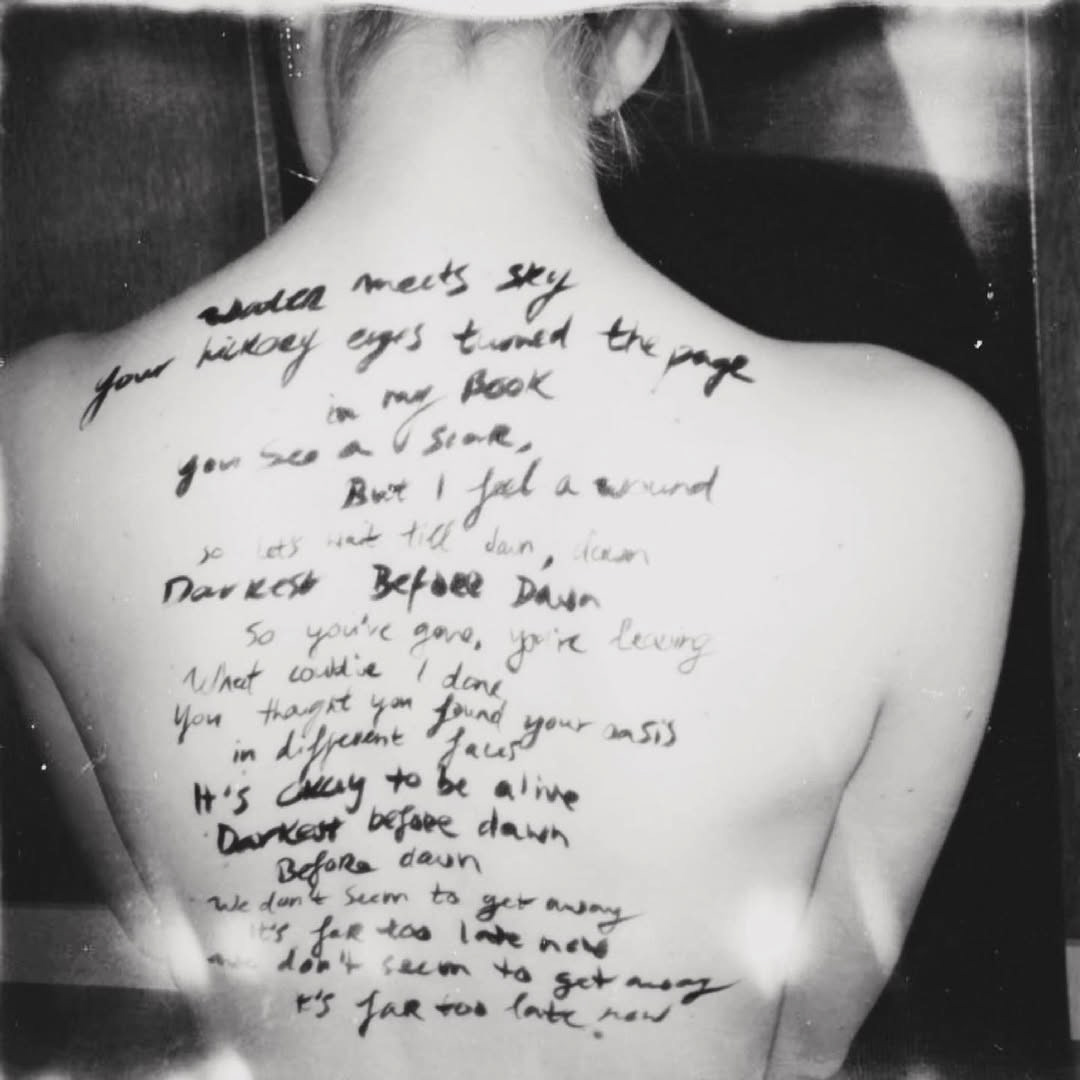 water meets sky
your hickory eyes turned the page
in my Book
you see a scar,
But I feel a wound
so lets wait till dawn, dawn
Darkest Before Dawn
So you've gone, you're leaving
What could've I done
You thought you found your oasis
in different faces
It's okay to be alive
Darkest before dawn
Before dawn
We don't seem to get away
It's far too late now
we don't seem to get away
It's far too late now